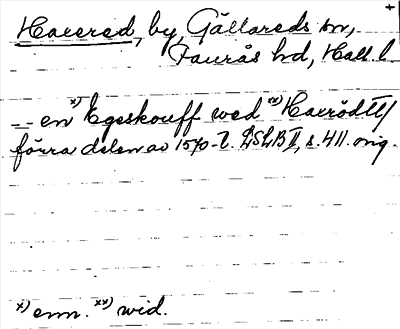 +
Havered, by, Gällareds sn,
Faurås hd, Hall. l.
-- en x) Egeskouff wed xx) Harröd II/
förra delen av 1570-t. LSLB II, s. 411. orig.
x) enn. xx) wid.